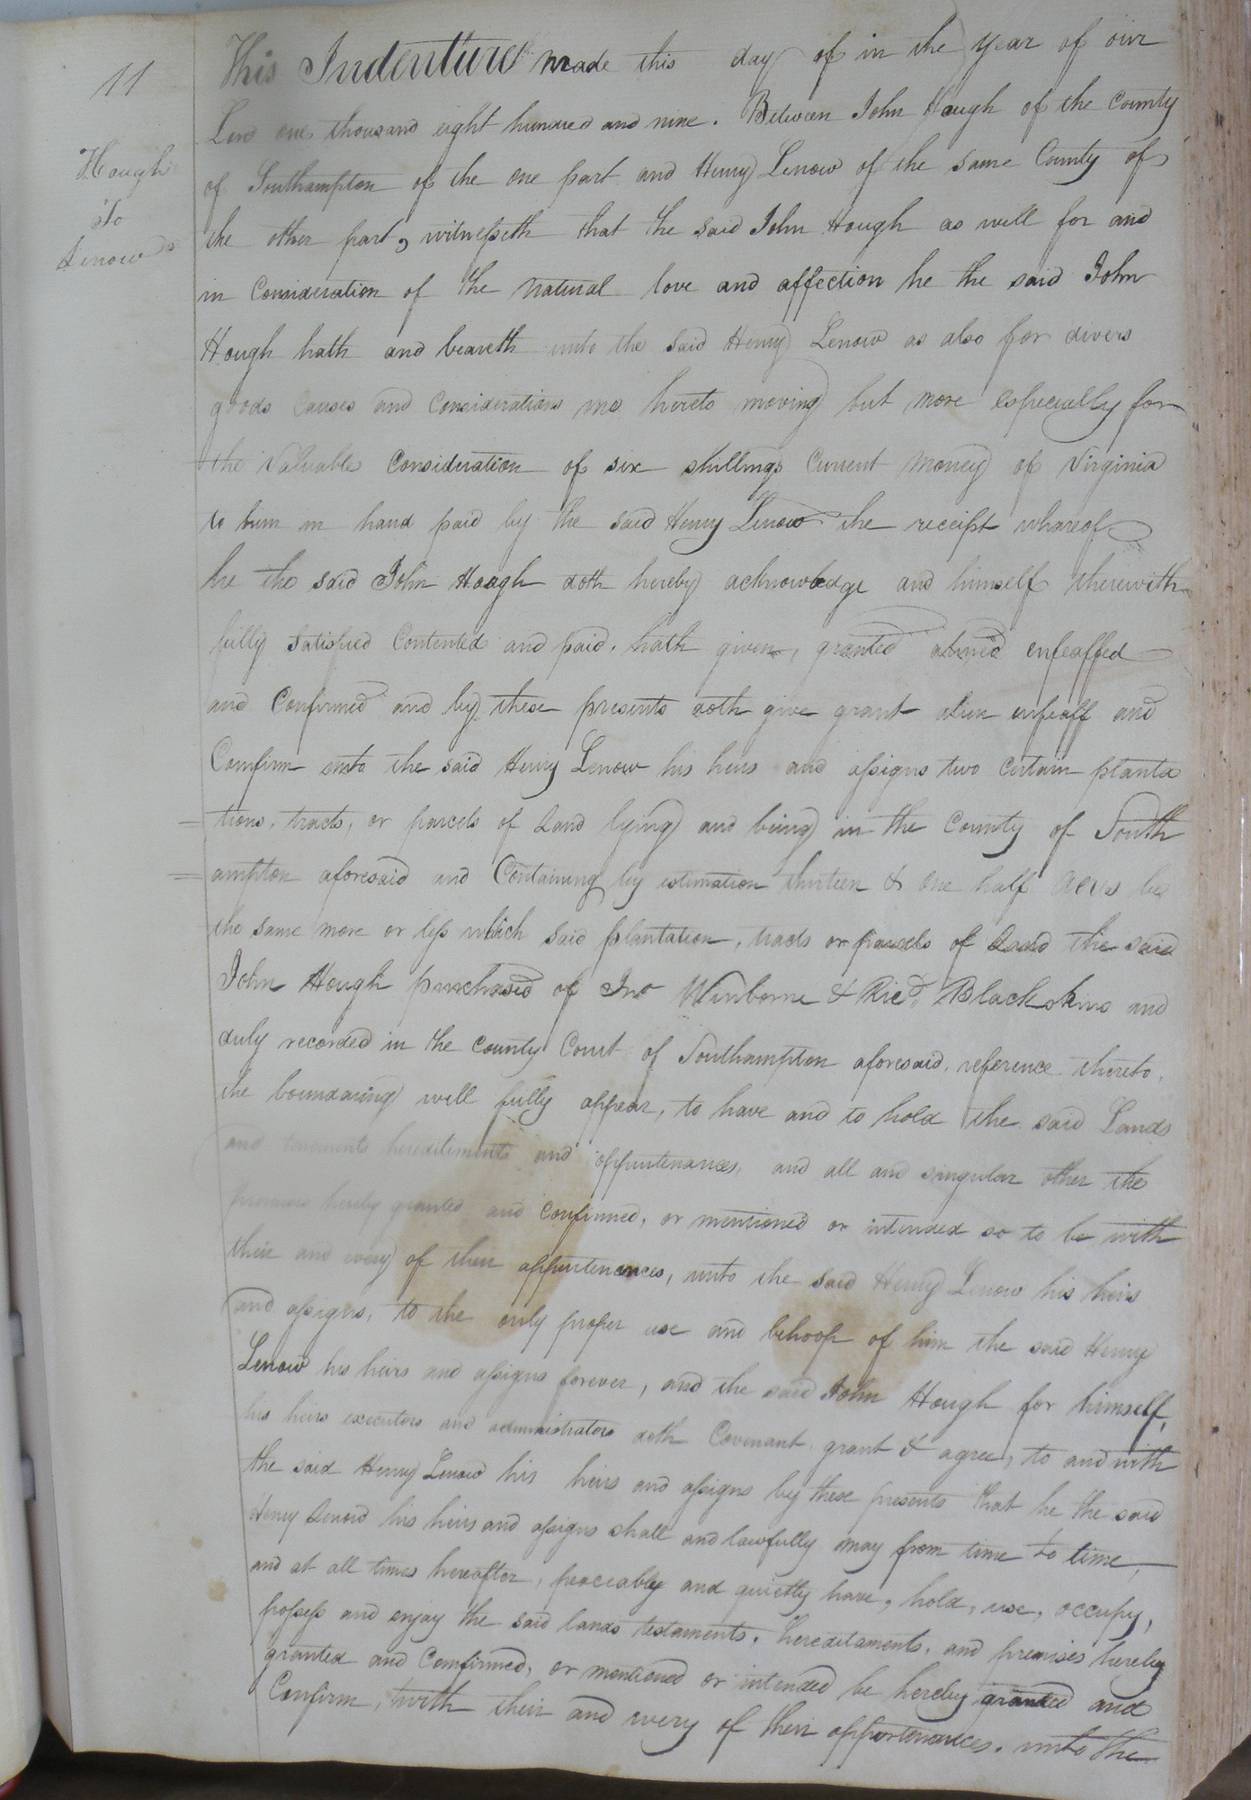 11
Hough
To
Lenow
This Indenture made this day of in the Year of our
Lord one thousand eight hundred and nine. Between John Hough of the County
of Southampton of the one part and Henry Lenow of the same County of
the other part, witnesseth that the said John Hough as well for and
in Consideration of the natural love and affection he the said John
Hough hath and beareth unto the said Henry Lenow as also for divers
goods Causes and Considerations me hereto moving but more especially for
the Valuable Consideration of six shillings Current money of Virginia
to him in hand paid by the said Henry Lenow the receipt whareof
he the said John Hough doth hereby acknowledge and himself therewith
fully Satisfied Contented and paid. hath given, granted aliened enfeaffed
and Confirmed and by these presents doth give grant alien enfeaff and
Comfirm unto the said Henry Lenow his heirs and assigns two Certain planta
tions, tracts, or parcels of Land lying and being in the County of South
ampton aforesaid and Containing by estimation thirteen & one half acres be
the same more or less which said plantation, tracts or parcels of Land the said
John Hough purchased of Jno Winborne & Ricd. Black and
duly recorded in the County Court of Southampton aforesaid, reference thereto.
the boundaring will fully appear, to have and to hold the said Lands
and tenements hereditements and appurtenances, and all and singular other the
premises hereby granted and confirmed, or mentioned or intended so to be with
their and every of their appurtenances, unto the said Henry Lenow his heirs
and assigns, to the only proper use and behoof of him the said Henry
Lenow his heirs and assigns forever, and the said John Hough for himself,
his heirs executors and administrators doth Covenant grant & agree, to and with
the said Henry Lenow his heirs and assigns by these presents that he the said
Henry Lenow his heirs and assigns shall and lawfully may from time to time,
and at all times hereafter, peaceably and quietly have, hold, use, occupy,
possess and enjoy the said lands testaments, hereditaments, and premises hereby
granted and Comfirmed, or mentioned or intended be hereby granted and
Confirm, with their and every of their appurtenances. unto the